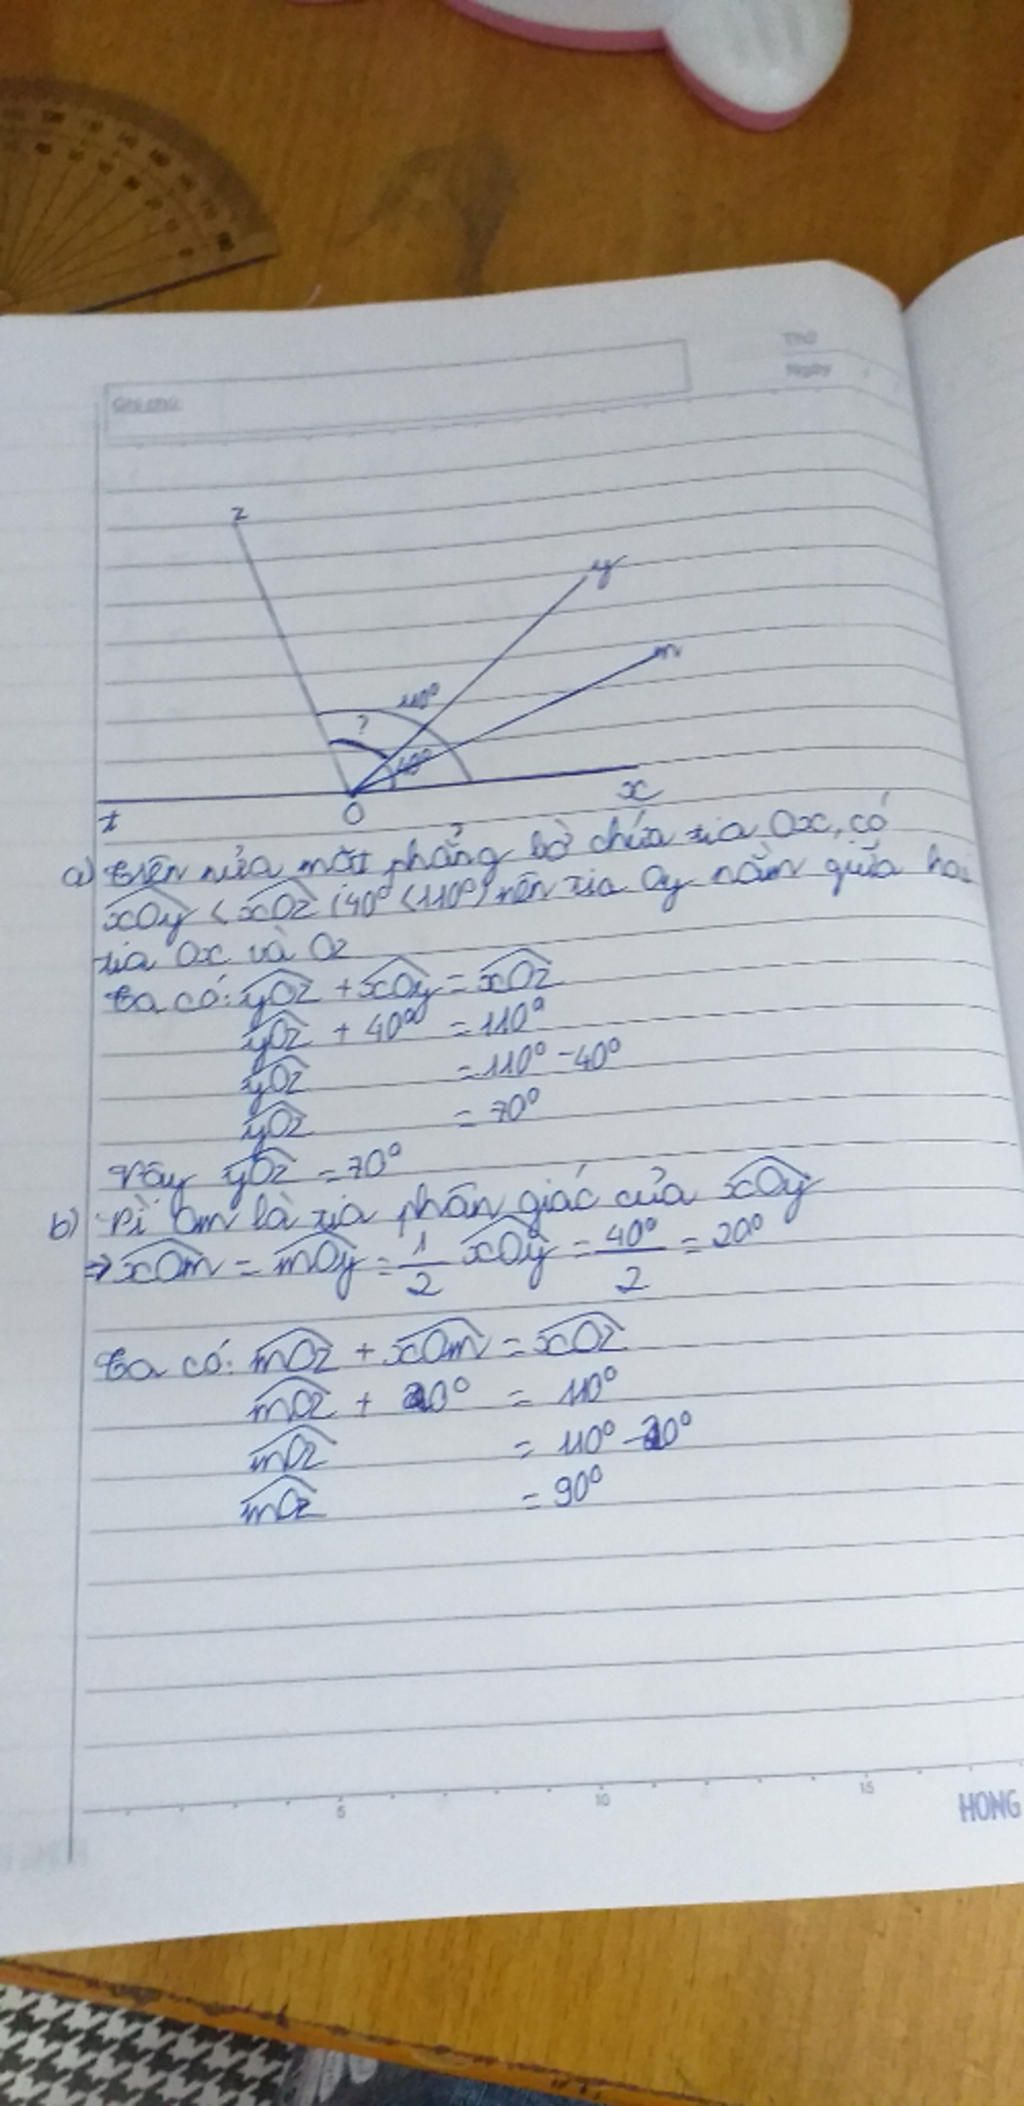 Thứ
Ngày
Ghi chú
z
y
m
110°
?
40°
x
t
O
a) Trên nửa mặt phẳng bờ chứa tia Ox, có
xOy < xOz (40° < 110°) nên tia Oy nằm giữa hai
tia Ox và Oz
Ta có: yOz + xOy = xOz
yOz + 40° = 110°
yOz = 110° - 40°
yOz = 70°
Vậy yOz = 70°
b) Vì Om là tia phân giác của xOy
⇒ xOm = mOy = 1/2 xOy = 40°/2 = 20°
Ta có: mOz + xOm = xOz
mOz + 20° = 110°
mOz = 110° - 20°
mOz = 90°
5 10 15
HONG